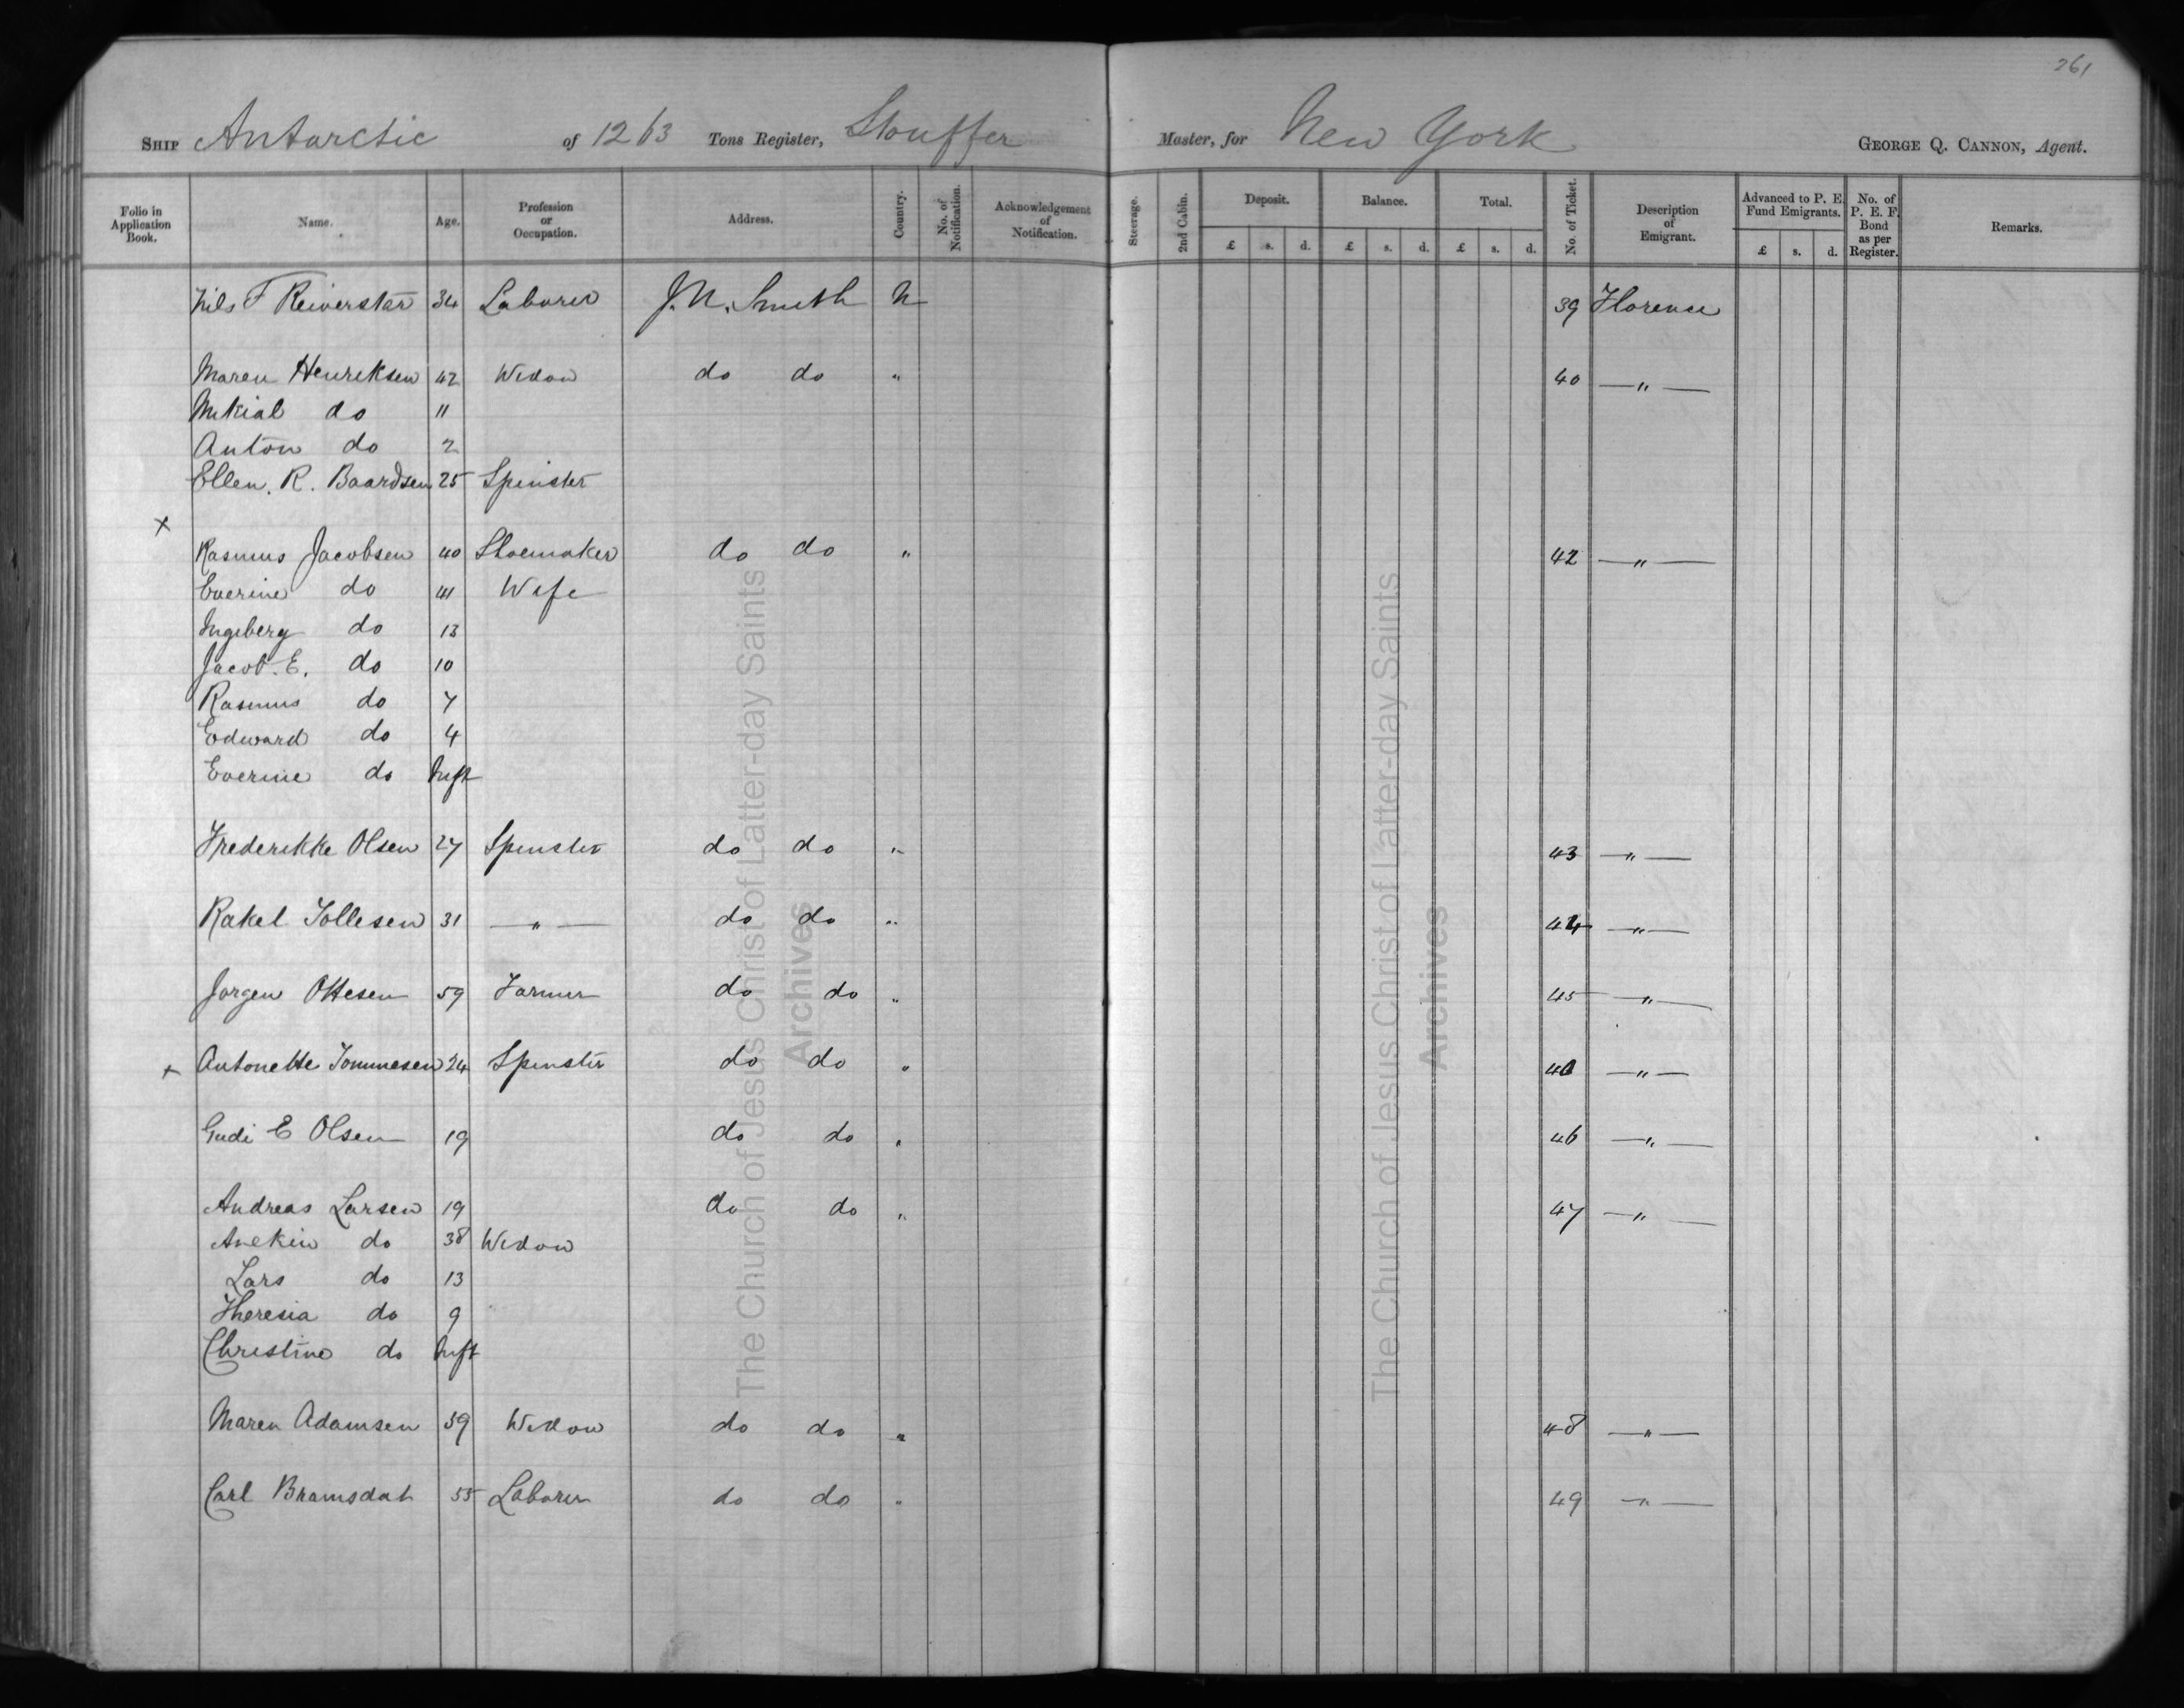 261
SHIP Antarctic of 1263 Tons Register, Stouffer Master, for New York GEORGE Q. CANNON, Agent.
Folio in Application Book. Name. Age. Profession or Occupation. Address. Country. No. of Notification. Acknowledgement of Notification. Steerage. 2nd Cabin. Deposit. £ s. d. Balance. £ s. d. Total. £ s. d. No. of Ticket. Description of Emigrant. Advanced to P. E. Fund Emigrants. £ s. d. No. of P. E. F. Bond as per Register. Remarks.
Nils F 34 Laborer J. N. Smith N 39 Florence
Maren Henriksen 42 Widow do do " 40 —"—
Mikial do 11
Anton do 2
Ellen. R. Baardsen 25 Spinster
x
Rasmus Jacobsen 40 Shoemaker do do " 42 —"—
Everine do 41 Wife
Ingeberg do 13
Jacob. E. do 10
Rasmus do 7
Edward do 4
Everine do Inft
Frederikke Olsen 27 Spinster do do " 43 —"—
Rakel Tollesen 31 —"— do do " 44 —"—
Jorgen Ottesen 59 Farmer do do " 45 —"—
x Antonette Tommesen 24 Spinster do do " —"—
Gudi E Olsen 19 do do " 46 —"—
Andreas Larsen 19 do do " 47 —"—
Anekin do 38 Widow
Lars do 13
Theresia do 9
Christine do Inft
Maren Adamsen 39 Widow do do " 48 —"—
Carl Bramsdat 55 Laborer do do " 49 —"—
The Church of Jesus Christ of Latter-day Saints
Archives
The Church of Jesus Christ of Latter-day Saints
Archives